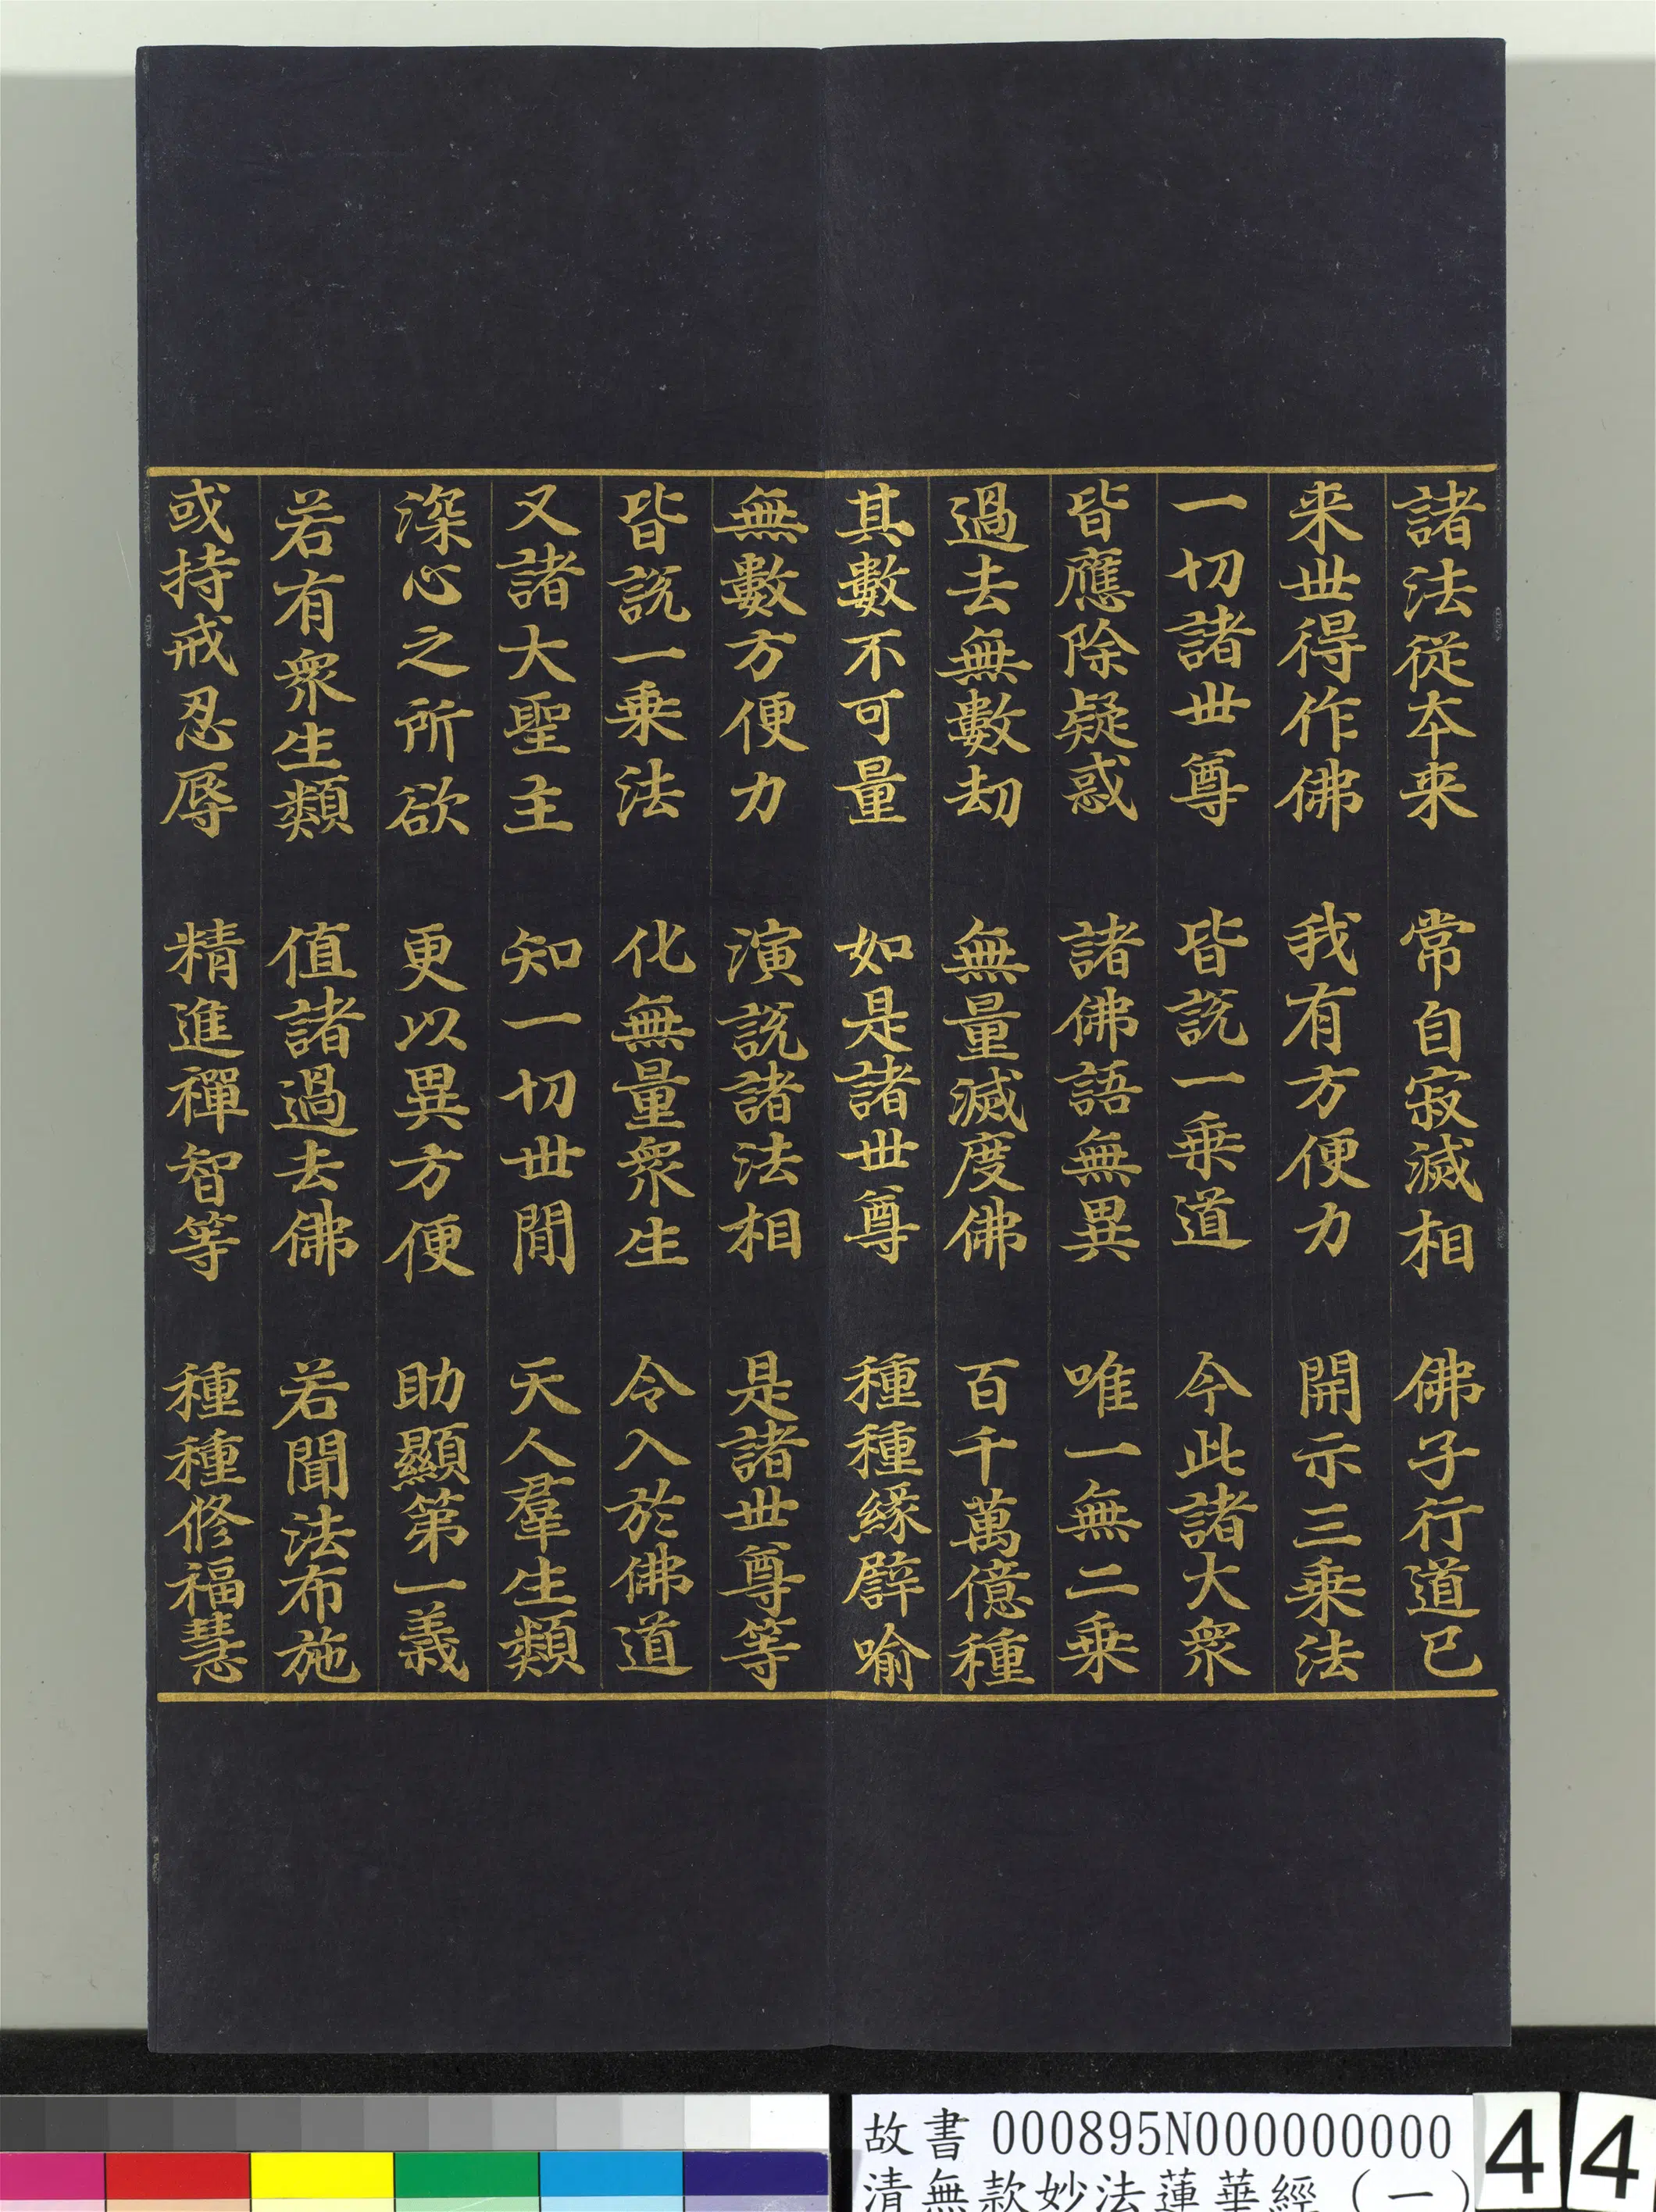 諸法從本来　常自寂滅相　佛子行道已
来世得作佛　我有方便力　開示三乗法
一切諸世尊　皆說一乗道　今此諸大衆
皆應除疑惑　諸佛語無異　唯一無二乗
過去無數劫　無量滅度佛　百千萬億種
其數不可量　如是諸世尊　種種緣譬喻
無數方便力　演說諸法相　是諸世尊等
皆說一乗法　化無量衆生　令入於佛道
又諸大聖主　知一切世間　天人羣生類
深心之所欲　更以異方便　助顯第一義
若有衆生類　值諸過去佛　若聞法布施
或持戒忍辱　精進禪智等　種種修福慧
故書 000895N000000000
清無款妙法蓮華經（一）
44